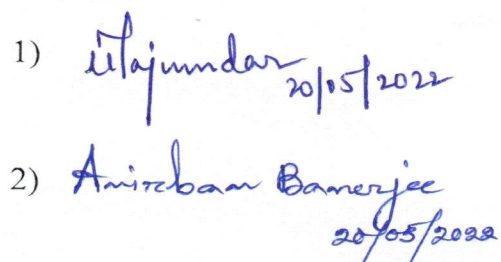 1) Majumdar 20/05/2022
2) Anirban Banerjee
20/05/2022